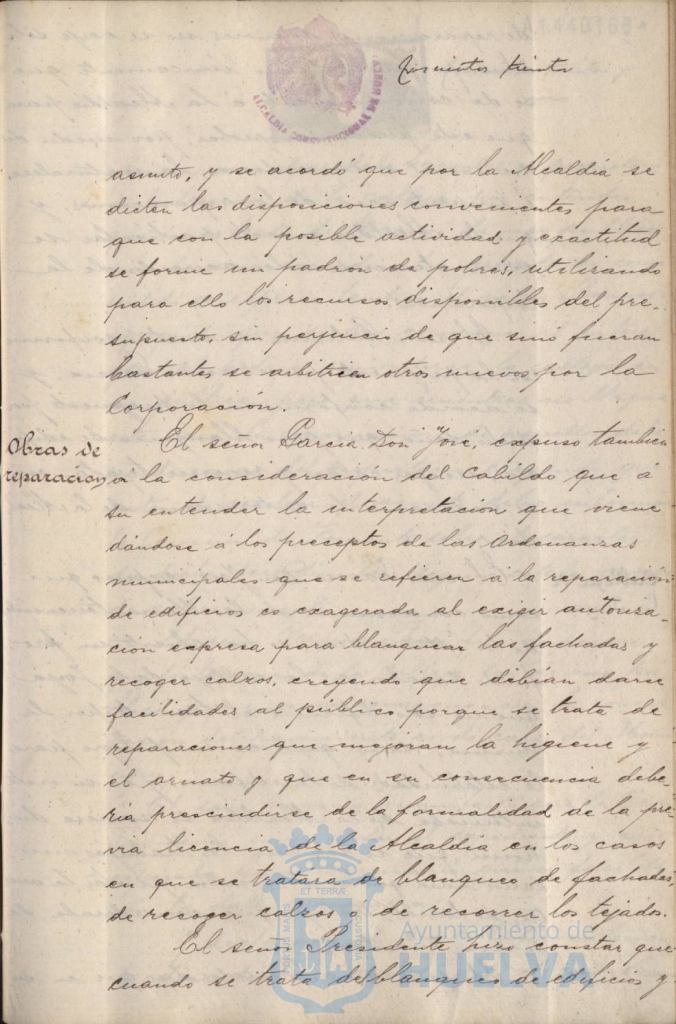 Doscientos treinta
ALCALDÍA CONSTITUCIONAL DE HUELVA
asunto, y se acordó que por la Alcaldía se
dicten las disposiciones convenientes para
que con la posible actividad y exactitud
se forme un padrón de pobres, utilizando
para ello los recursos disponibles del pre-
supuesto, sin perjuicio de que sinó fueran
bastantes se arbitrien otros nuevos por la
Corporación.
Obras de
reparación
El señor Garcia Don José, expuso también
á la consideración del Cabildo que á
su entender la interpretación que viene
dándose á los preceptos de las Ordenanzas
municipales que se refieren á la reparación
de edificios es exagerada al exigir autoriza-
ción expresa para blanquear las fachadas y
recoger calzos, creyendo que debian darse
facilidades al público porque se trata de
reparaciones que mejoran la higiene y
el ornato y que en su consecuencia debe-
ria prescindirse de la formalidad de la pre-
via licencia de la Alcaldia en los casos
en que se tratára de blanqueo de fachadas,
de recoger calzos o de recorrer los tejados.
El señor Presidente hizo constar que
cuando se trata de blanqueo de edificios y
ET TERRÆ
PORTUS MARIS
CUSTODIA
Ayuntamiento de
HUELVA